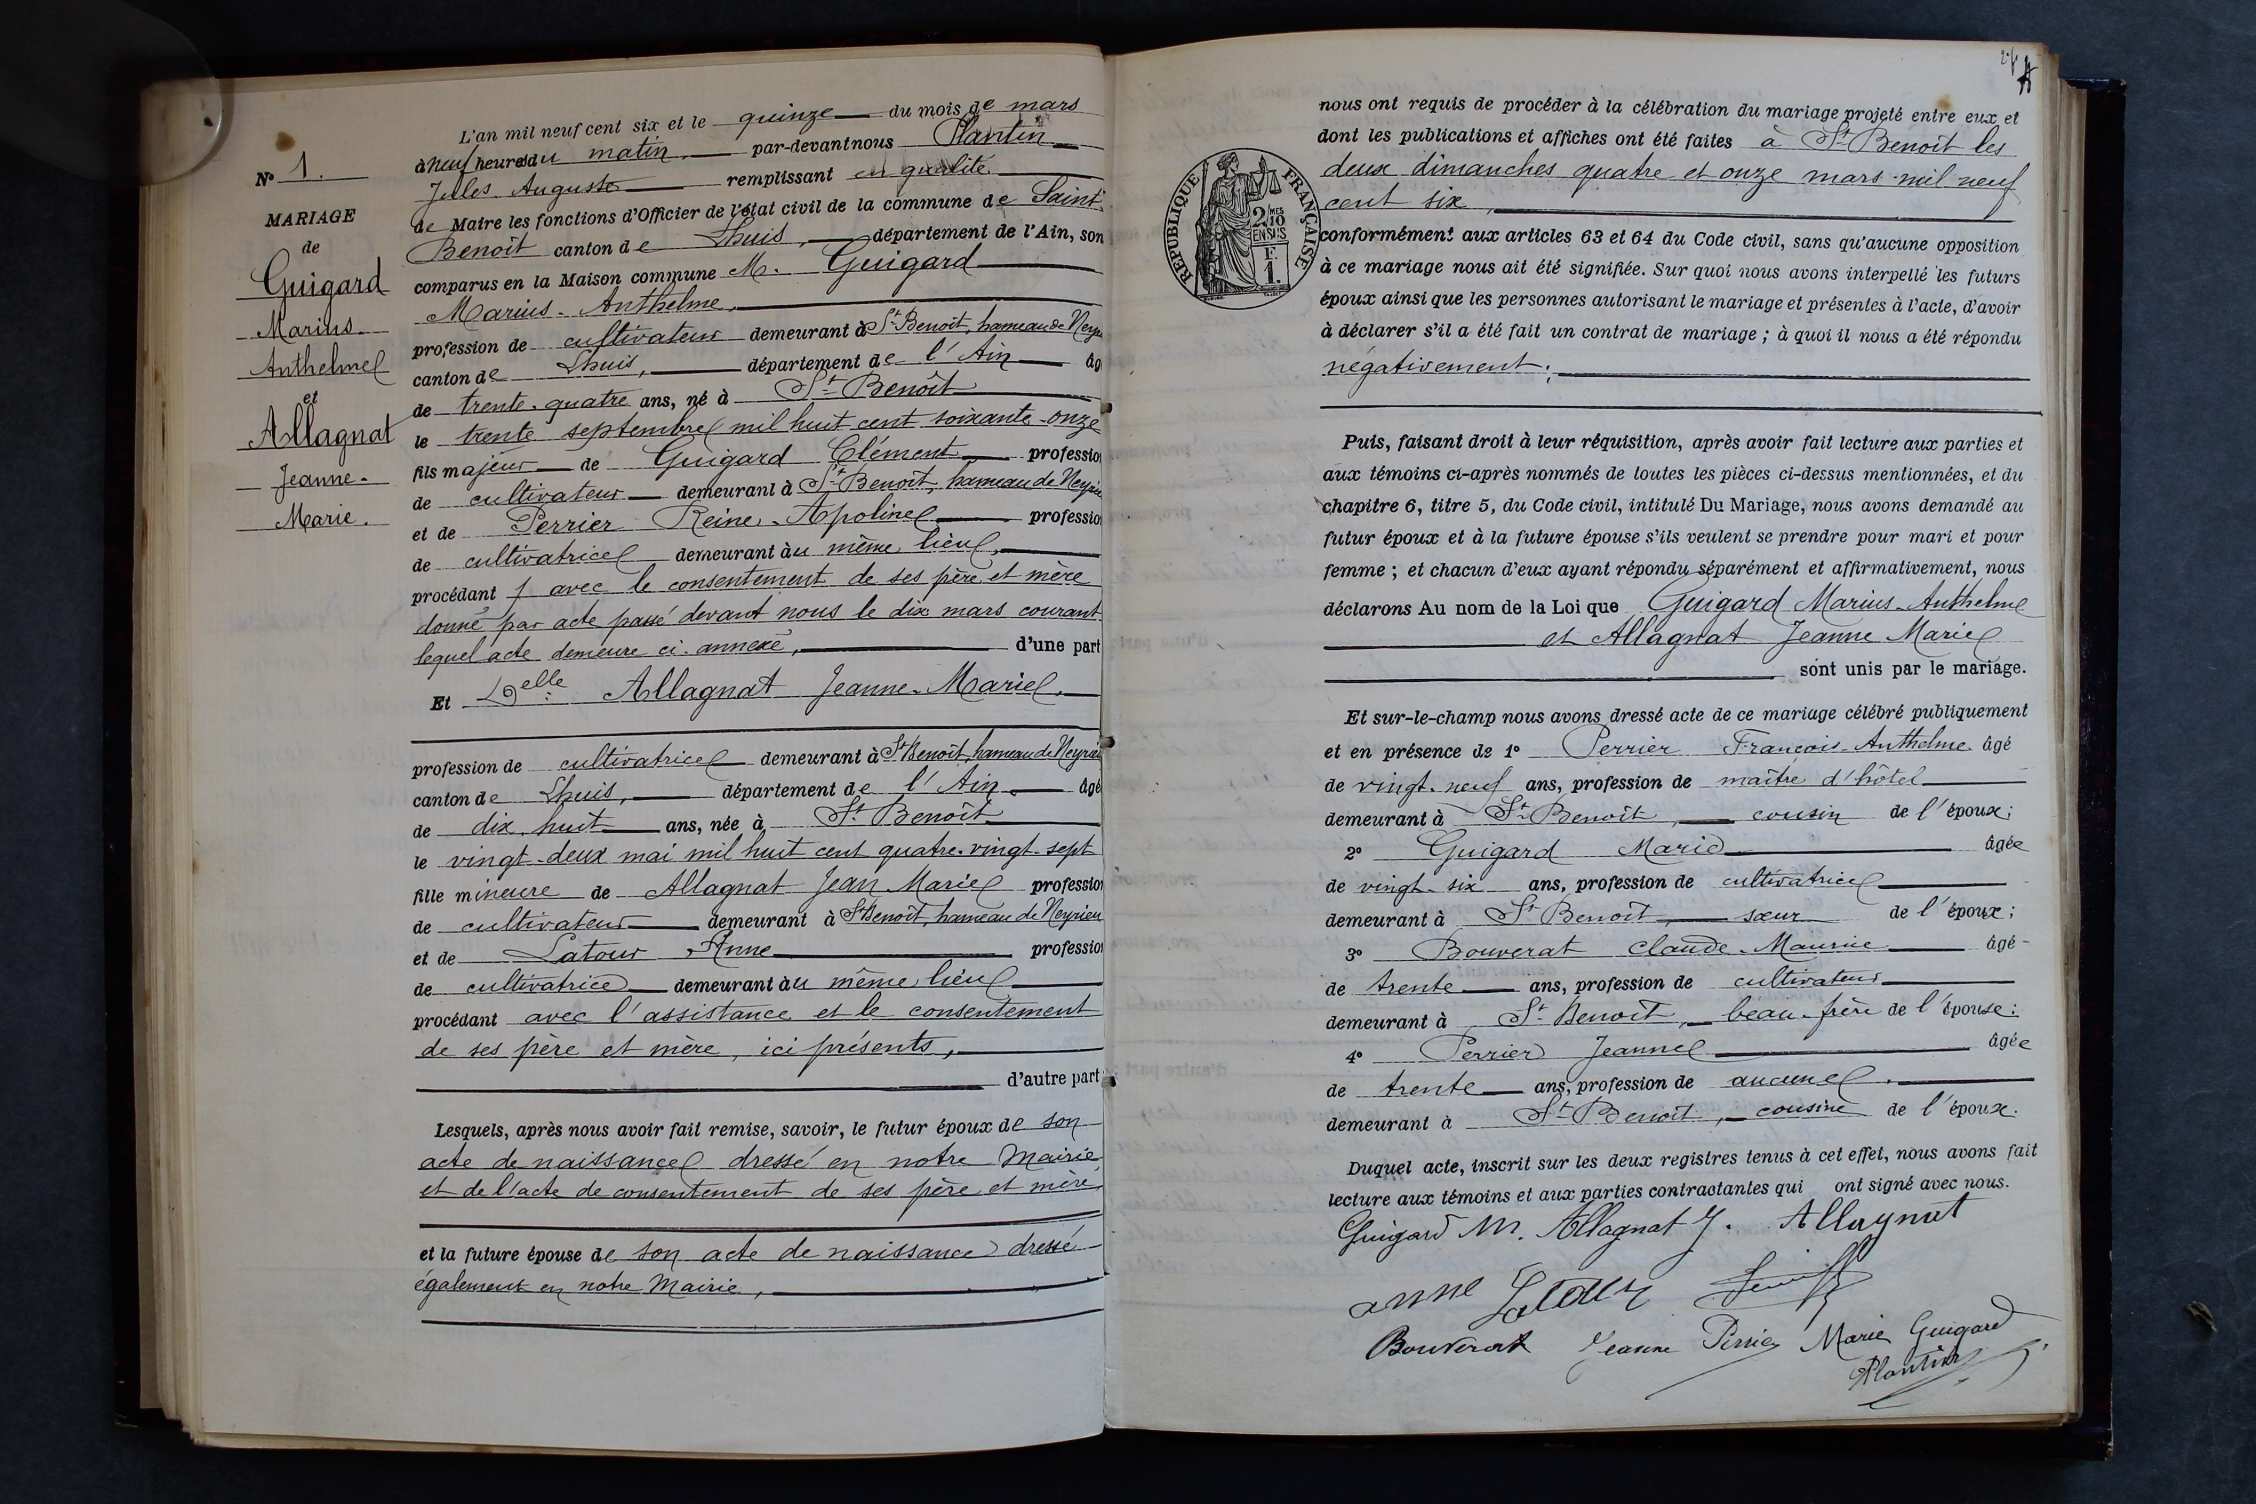 N° 1.
MARIAGE
de
Guigard
Marius
Anthelme
et
Allagnat
Jeanne-
Marie.
L'an mil neuf cent six et le quinze du mois de mars
à neuf heures du matin par-devant nous Plantin
Jules Auguste remplissant en qualité
de Maire les fonctions d'Officier de l'état civil de la commune de Saint-
Benoît canton de Lhuis, département de l'Ain, son
comparus en la Maison commune M. Guigard
Marius-Anthelme,
profession de cultivateur demeurant à St Benoît, hameau de Neyri
canton de Lhuis, département de l'Ain âg
de trente-quatre ans, né à St Benoît
le trente septembre mil huit cent soixante-onze
fils majeur de Guigard Clément profession
de cultivateur demeurant à St Benoît, hameau de Neyrie
et de Perrier Reine-Apoline profession
de cultivatrice demeurant au même lieu,
procédant avec le consentement de ses père et mère
donné par acte passé devant nous le dix mars courant
lequel acte demeure ci-annexé, d'une part
Et Delle Allagnat Jeanne-Marie,
profession de cultivatrice demeurant à St Benoît, hameau de Neyrieu
canton de Lhuis, département de l'Ain âgé
de dix-huit ans, née à St Benoît
le vingt-deux mai mil huit cent quatre-vingt-sept
fille mineure de Allagnat Jean Marie profession
de cultivateur demeurant à St Benoît, hameau de Neyrieu
et de Latour Anne profession
de cultivatrice demeurant au même lieu
procédant avec l'assistance et le consentement
de ses père et mère, ici présents,
d'autre part
Lesquels, après nous avoir fait remise, savoir, le futur époux de son
acte de naissance dressé en notre Mairie
et de l'acte de consentement de ses père et mère,
et la future épouse de son acte de naissance dressé
également en notre Mairie,
RÉPUBLIQUE FRANÇAISE
2/10MES
EN SUS
F.
1.
nous ont requis de procéder à la célébration du mariage projeté entre eux et
dont les publications et affiches ont été faites à St Benoît les
deux dimanches quatre et onze mars mil neuf
cent six,
conformément aux articles 63 et 64 du Code civil, sans qu'aucune opposition
à ce mariage nous ait été signifiée. Sur quoi nous avons interpellé les futurs
époux ainsi que les personnes autorisant le mariage et présentes à l'acte, d'avoir
à déclarer s'il a été fait un contrat de mariage ; à quoi il nous a été répondu
négativement.
Puis, faisant droit à leur réquisition, après avoir fait lecture aux parties et
aux témoins ci-après nommés de toutes les pièces ci-dessus mentionnées, et du
chapitre 6, titre 5, du Code civil, intitulé Du Mariage, nous avons demandé au
futur époux et à la future épouse s'ils veulent se prendre pour mari et pour
femme ; et chacun d'eux ayant répondu séparément et affirmativement, nous
déclarons Au nom de la Loi que Guigard Marius-Anthelme
et Allagnat Jeanne Marie
sont unis par le mariage.
Et sur-le-champ nous avons dressé acte de ce mariage célébré publiquement
et en présence de 1° Perrier François-Anthelme âgé
de vingt-neuf ans, profession de maître d'hôtel
demeurant à St Benoît, cousin de l'époux ;
2° Guigard Marie âgée
de vingt-six ans, profession de cultivatrice
demeurant à St Benoît, sœur de l'époux ;
3° Bouverat Claude-Maurice âgé
de trente ans, profession de cultivateur
demeurant à St Benoît, beau-frère de l'épouse ;
4° Perrier Jeanne âgée
de trente ans, profession de aucune.
demeurant à St Benoît, cousine de l'époux.
Duquel acte, inscrit sur les deux registres tenus à cet effet, nous avons fait
lecture aux témoins et aux parties contractantes qui ont signé avec nous.
Guigard M. Allagnat J. Allagnat
anne Latour
Bouverat Jeanne Perrier Marie Guigard
Plantin